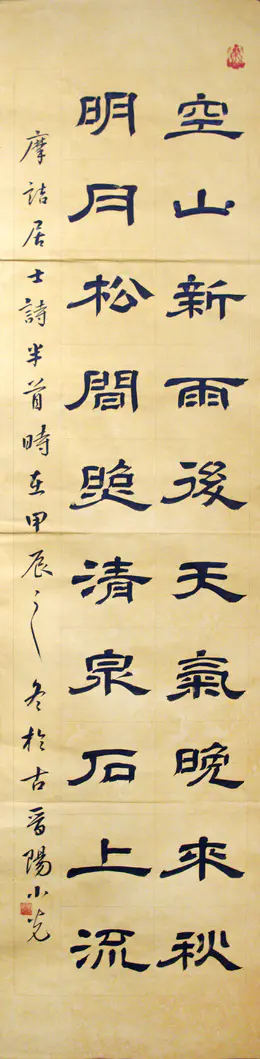 空山新雨後天氣晚來秋
明月松間照清泉石上流
摩詰居士詩半首時在甲辰之冬於古晋陽小光